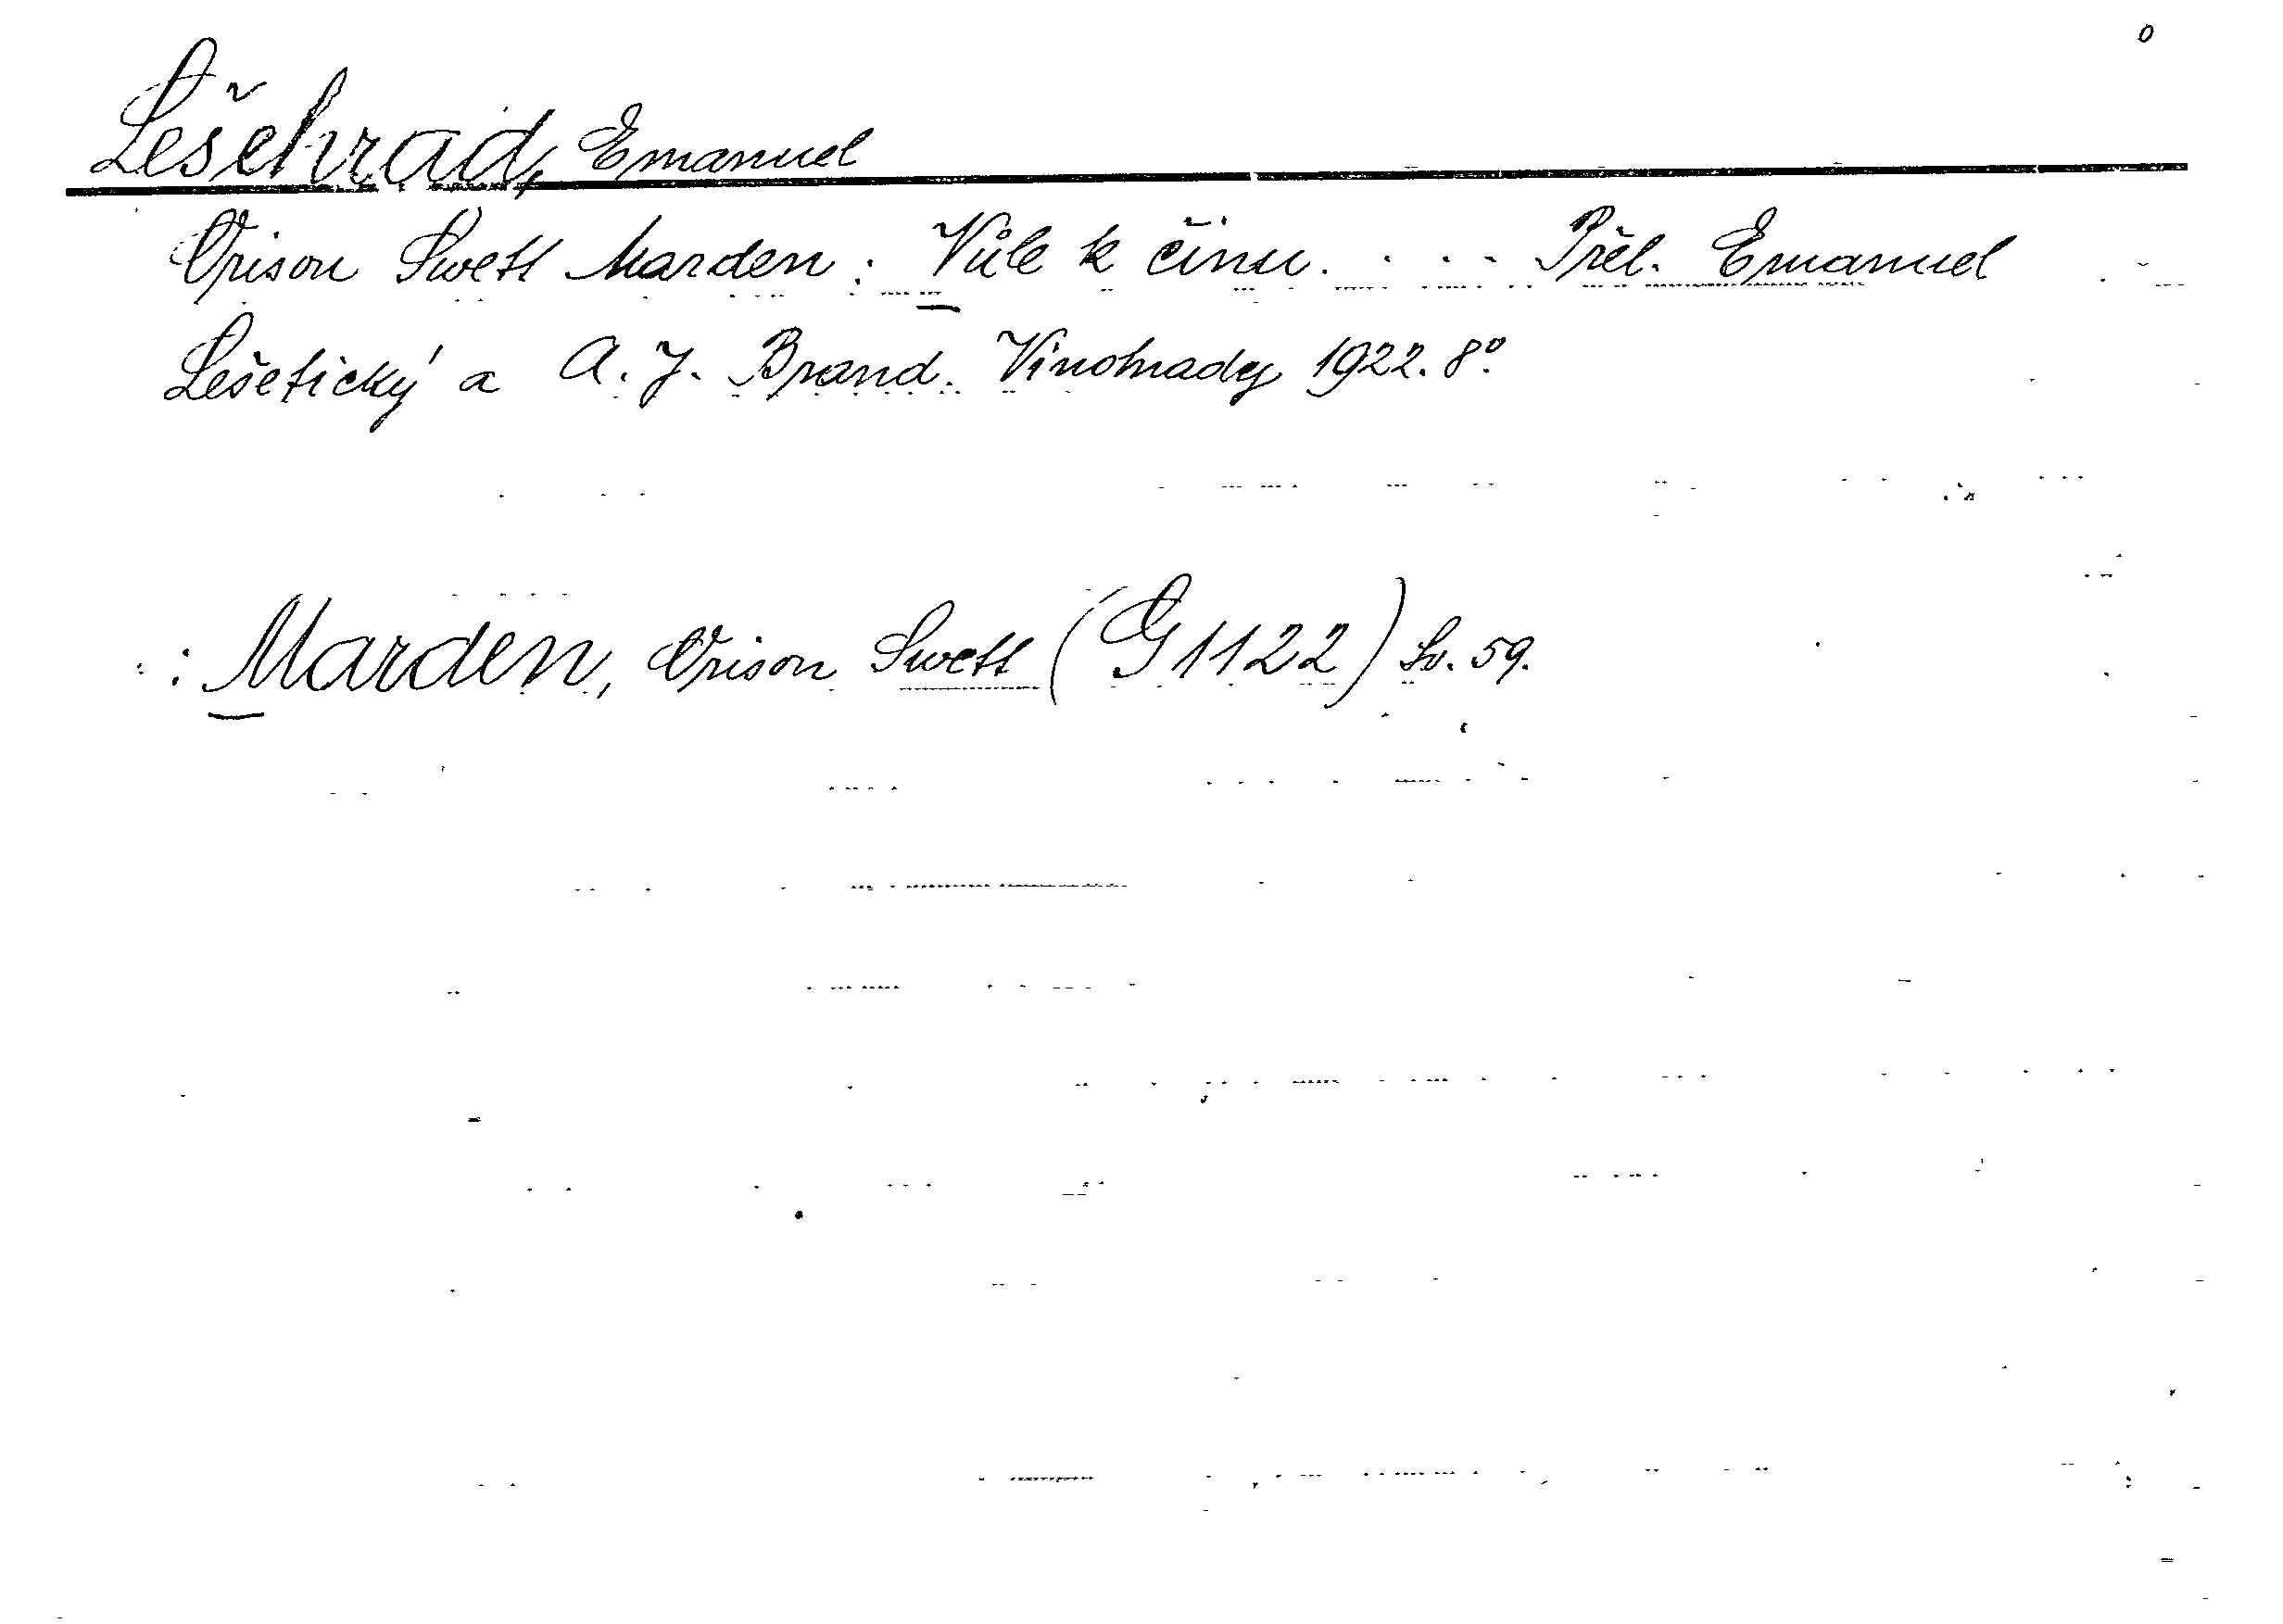 Lešehrad, Emanuel
Orison Swett Marden: Vůle k činu. . . . Přel. Emanuel
Lešetický a A. J. Brand. Vinohrady 1922. 8º.
: Marden, Orison Swett (G 1122) Sv. 59.